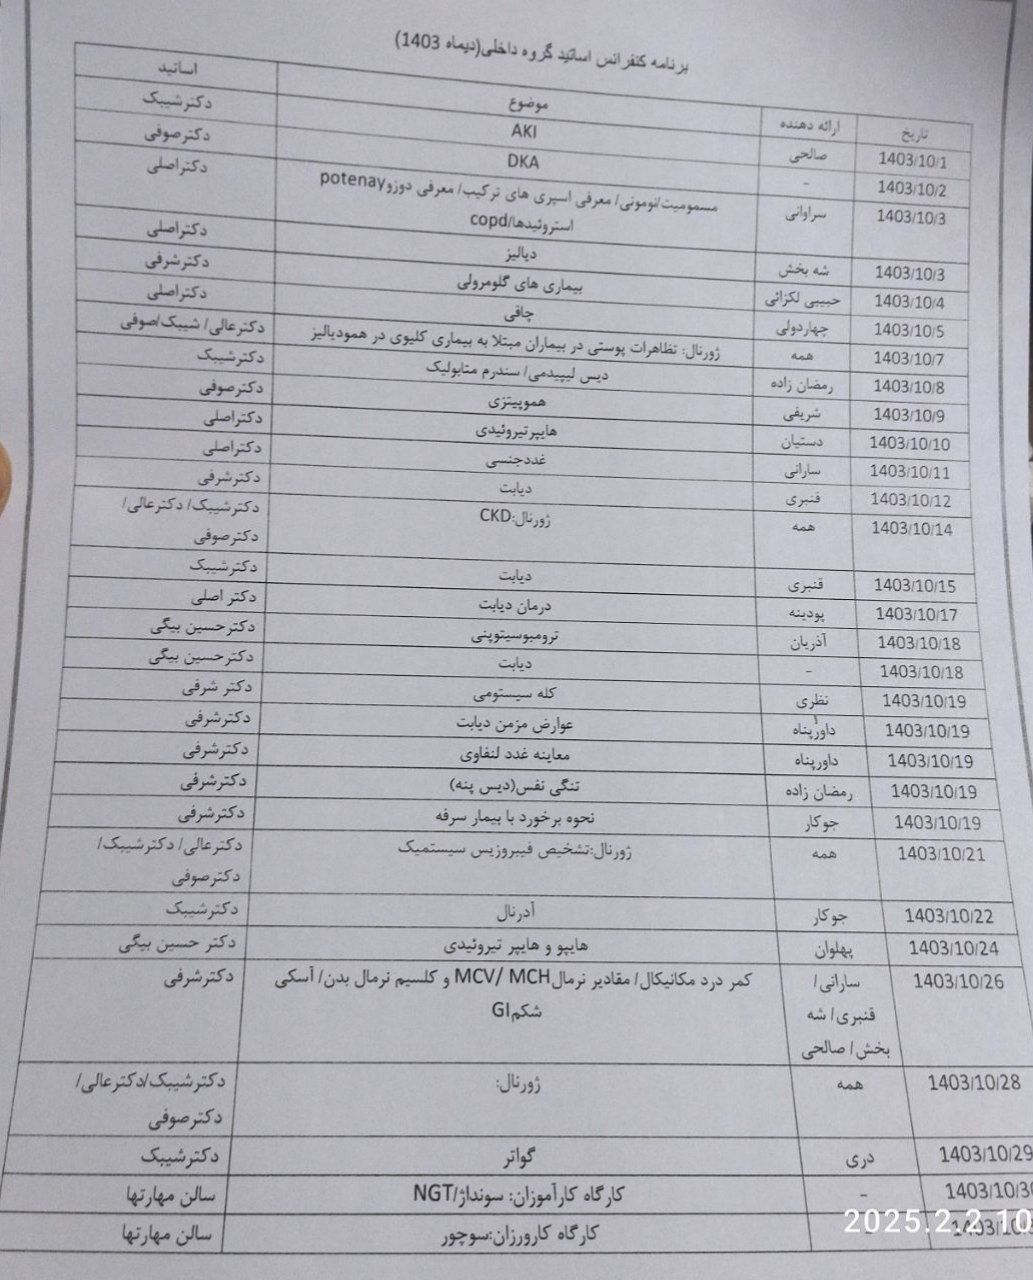 برنامه کنفرانس اساتید گروه داخلی(دیماه 1403)
تاریخ ارائه دهنده موضوع اساتید
1403/10/1 صالحی AKI دکترشیبک
1403/10/2 - DKA دکترصوفی
1403/10/3 سراوانی مسمومیت/نومونی/ معرفی اسپری های ترکیب/ معرفی دوزوpotenay دکتراصلی
استروئیدها/copd
1403/10/3 شه بخش دیالیز دکتراصلی
1403/10/4 حبیبی لکزائی بیماری های گلومرولی دکترشرفی
1403/10/5 چهاردولی چاقی دکتراصلی
1403/10/7 همه ژورنال: تظاهرات پوستی در بیماران مبتلا به بیماری کلیوی در همودیالیز دکترعالی/ شیبک/صوفی
1403/10/8 رمضان زاده دیس لیپیدمی/ سندرم متابولیک دکترشیبک
1403/10/9 شریفی هموپیتزی دکترصوفی
1403/10/10 دستیان هایپرتیروئیدی دکتراصلی
1403/10/11 سارانی غددجنسی دکتراصلی
1403/10/12 قنبری دیابت دکترشرفی
1403/10/14 همه ژورنال:CKD دکترشیبک/ دکترعالی/
دکترصوفی
1403/10/15 قنبری دیابت دکترشیبک
1403/10/17 پودینه درمان دیابت دکتر اصلی
1403/10/18 آذریان ترومبوسیتوپنی دکترحسین بیگی
1403/10/18 - دیابت دکترحسین بیگی
1403/10/19 نظری کله سیستومی دکتر شرفی
1403/10/19 داورپناه عوارض مزمن دیابت دکترشرفی
1403/10/19 داورپناه معاینه غدد لنفاوی دکترشرفی
1403/10/19 رمضان زاده تنگی نفس(دیس پنه) دکترشرفی
1403/10/19 جوکار نحوه برخورد با بیمار سرفه دکترشرفی
1403/10/21 همه ژورنال:تشخیص فیبروزیس سیستمیک دکترعالی/ دکترشیبک/
دکترصوفی
1403/10/22 جوکار آدرنال دکترشیبک
1403/10/24 پهلوان هایپو و هایپر تیروئیدی دکتر حسین بیگی
1403/10/26 سارانی/ کمر درد مکانیکال/ مقادیر نرمالMCV/ MCH و کلسیم نرمال بدن/ آسکی دکترشرفی
قنبری/ شه شکمGI
بخش/ صالحی
1403/10/28 همه ژورنال: دکترشیبک/دکترعالی/
دکترصوفی
1403/10/29 دری گواتر دکترشیبک
1403/10/30 - کارگاه کارآموزان: سونداژ/NGT سالن مهارتها
کارگاه کارورزان:سوچور سالن مهارتها
2025.2.2 10